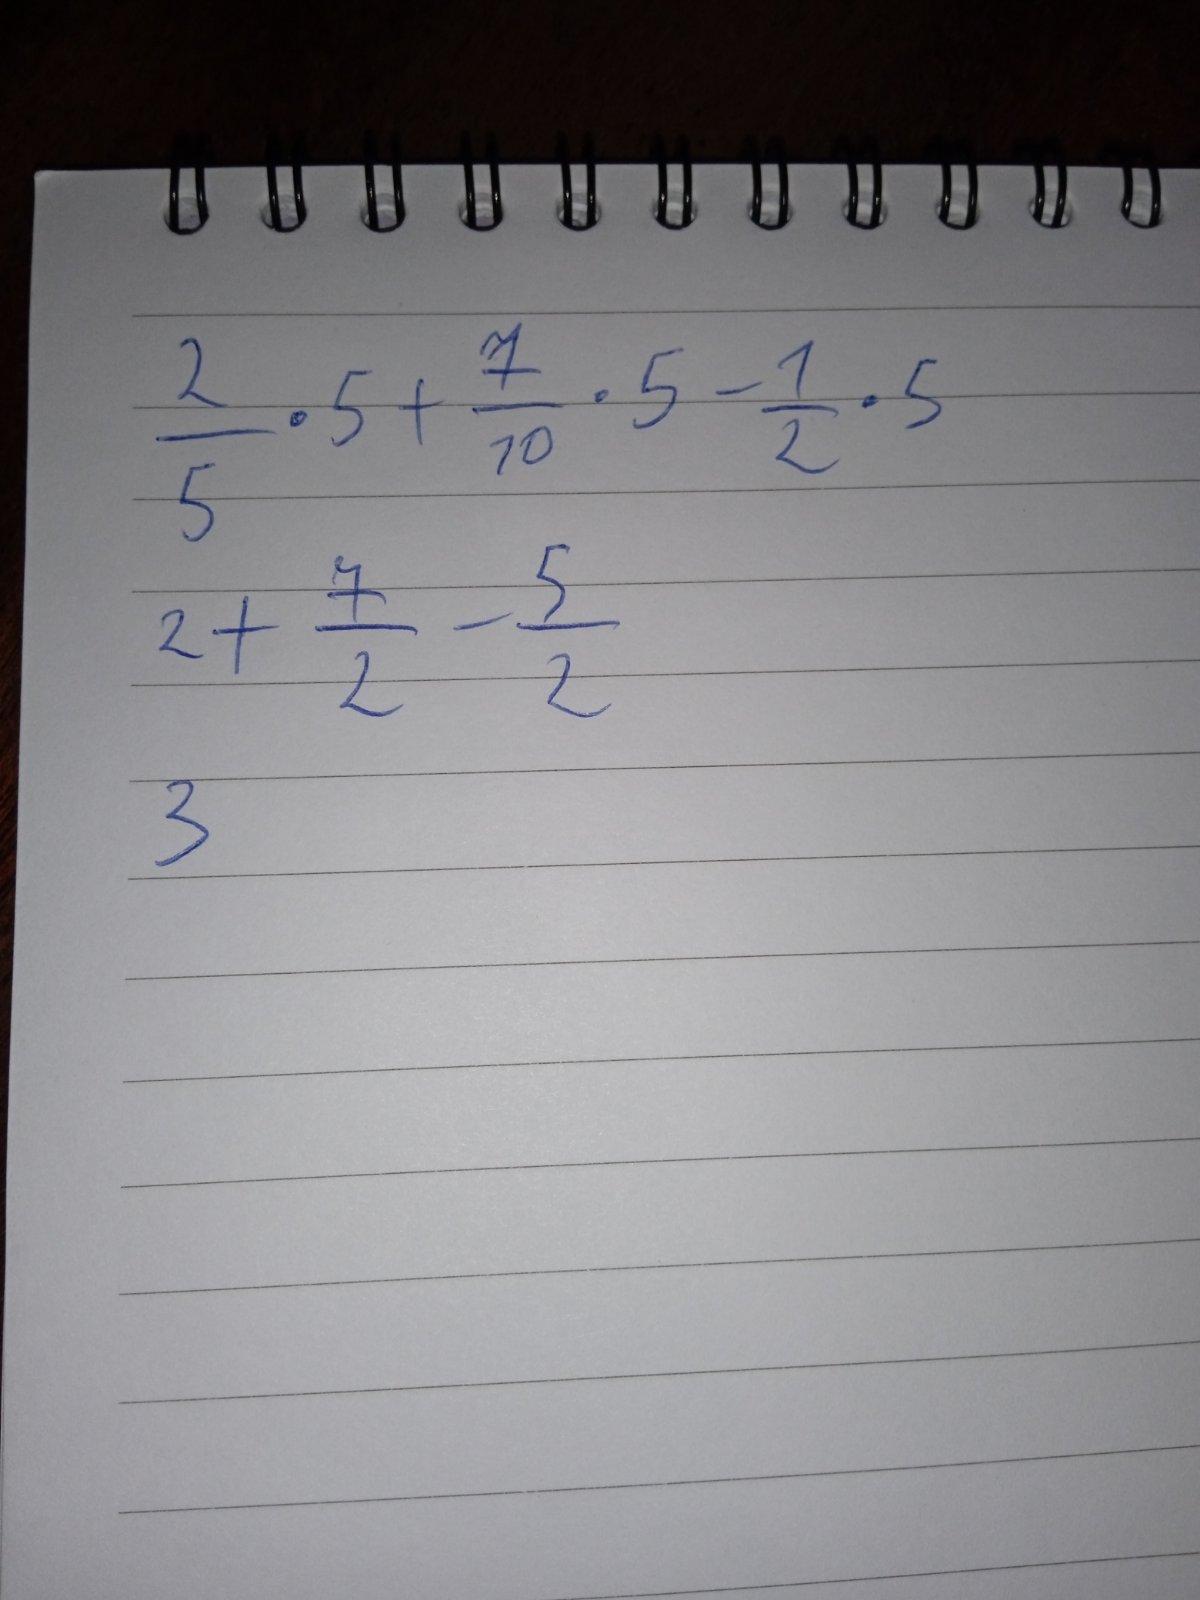 2/5 · 5 + 7/10 · 5 - 1/2 · 5
2 + 7/2 - 5/2
3